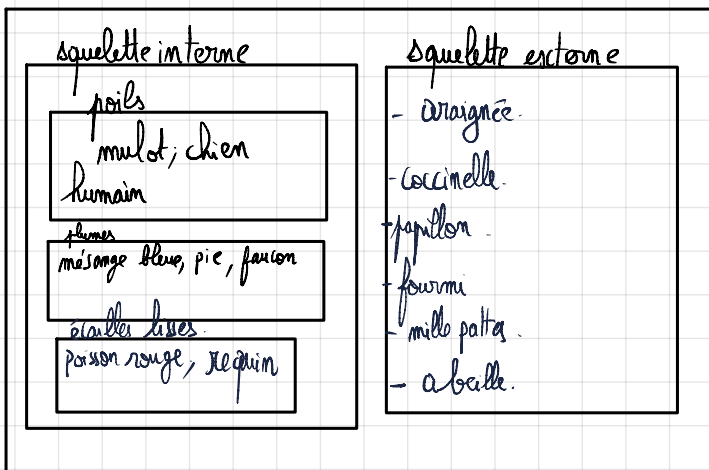 squelette interne
poils
mulot; chien
humain
plumes
mésange bleue, pie, faucon
écailles lisses.
poisson rouge, requin
squelette externe
- araignée.
- coccinelle.
- papillon.
- fourmi
- mille pattes.
- abeille.